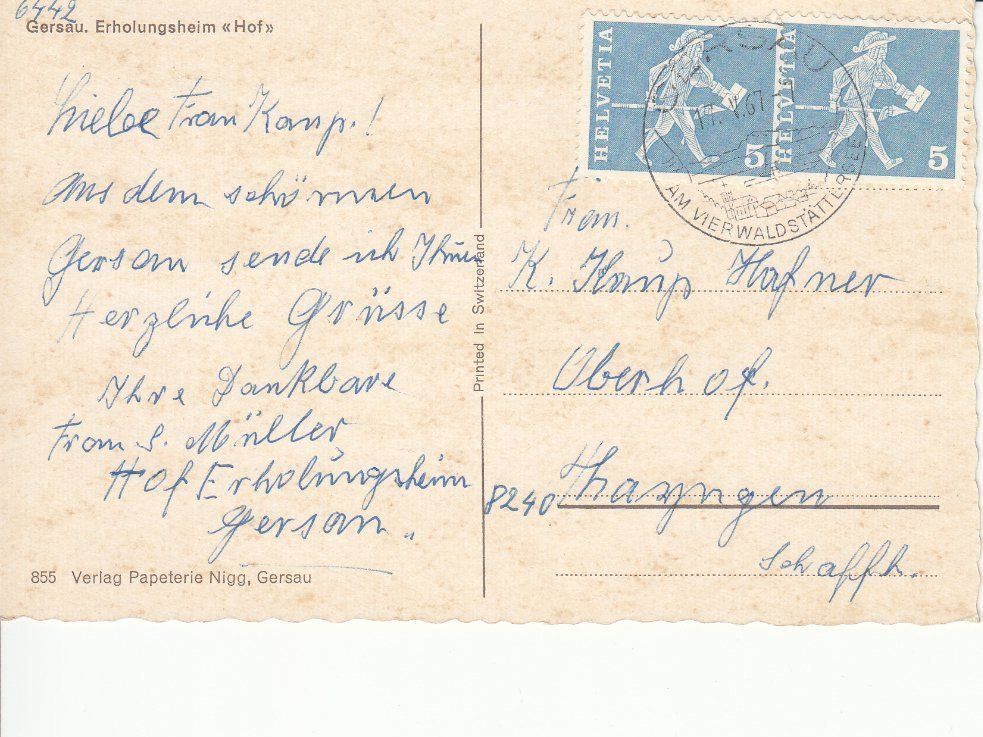 6442
Gersau. Erholungsheim «Hof»
Liebe Frau Kaup.!
aus dem schönnen
Gersau sende ich Ihnen
Herzliche Grüsse
Ihre Dankbare
Frau S. Müller
Hof Erholungsheim
Gersau
855 Verlag Papeterie Nigg, Gersau
Printed in Switzerland
HELVETIA 5
HELVETIA 5
GERSAU
17. V. 67
AM VIERWALDSTÄTTERSEE
Frau.
K. Kaup Hafner
Oberhof.
8240 Thayngen
Schaffh.